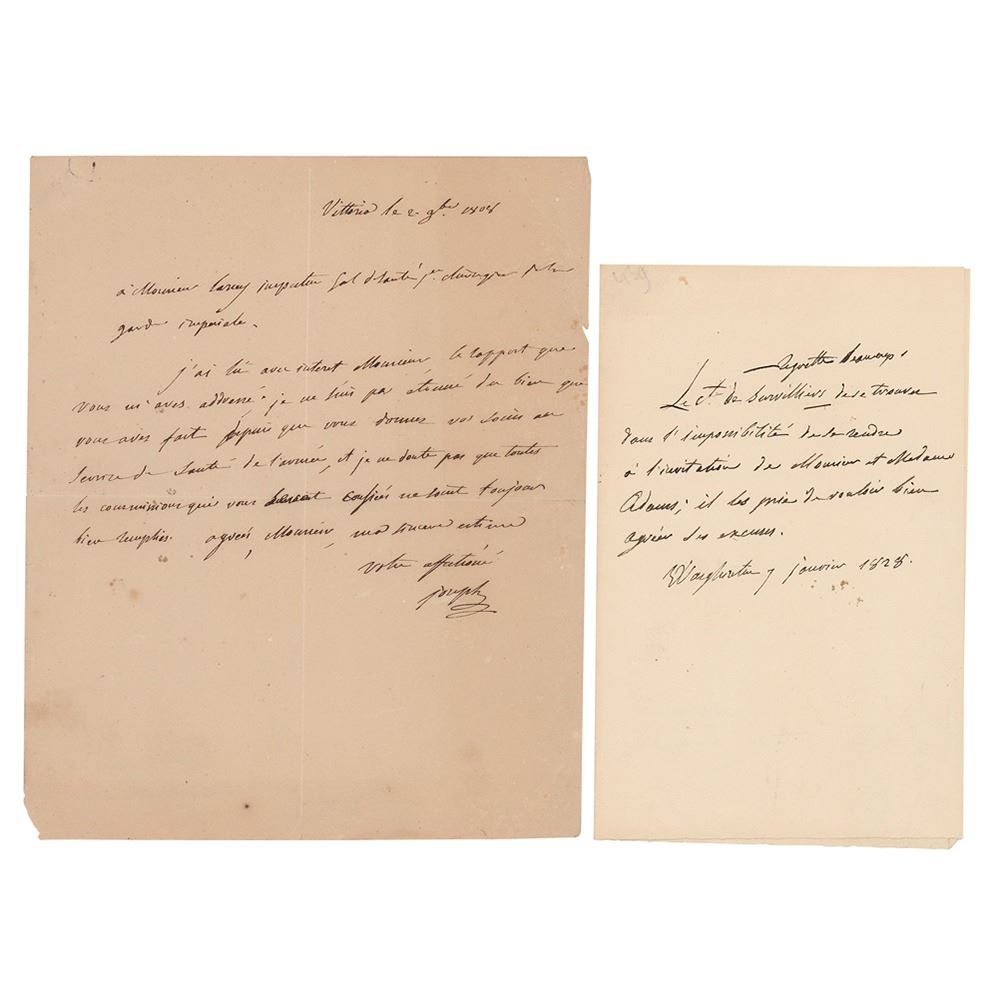 Vittoria le 2 9bre 1808
à Monsieur Larrey inspecteur Gal de Santé 1er chirurgien de la
garde impériale.
j'ai lu avec interet Monsieur le rapport que
vous m'aves addressé. je ne suis pas étonné du bien que
vous aves fait depuis que vous donnez vos soins au
Service de Santé de l'armée, et je ne doute pas que toutes
les commissions qui vous seront confiées ne soient toujours
bien remplies. agreés, Monsieur, ma sincere estime
votre affectioné
joseph
regrette beaucoup
Le Ct. de Survilliers de se trouver
dans l'impossibilité de se rendre
à l'invitation de Monsieur et Madame
Adams; il les prie de vouloir bien
agréer ses excuses.
Washington 7 janvier 1828.